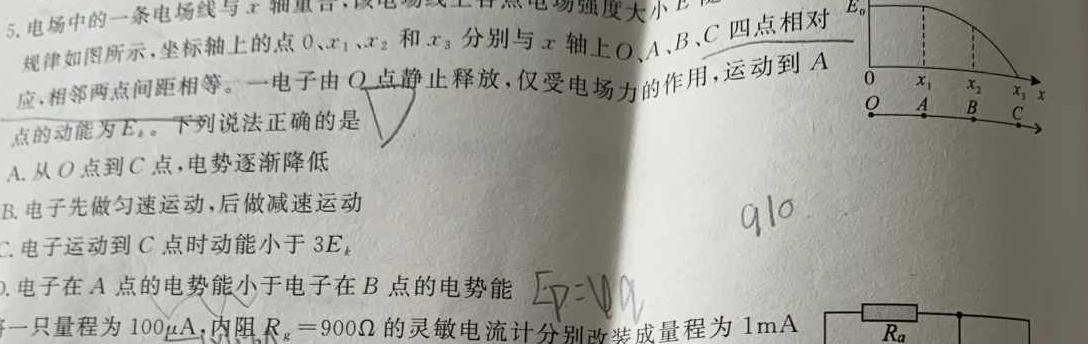 5. 电场中的一条电场线与 x 轴重合,该电场线上各点电场强度大小 E
规律如图所示,坐标轴上的点 0、x₁、x₂ 和 x₃ 分别与 x 轴上O、A、B、C 四点相对
应,相邻两点间距相等。一电子由 O 点静止释放,仅受电场力的作用,运动到 A
点的动能为 Eₖ。下列说法正确的是
A. 从 O 点到 C 点,电势逐渐降低
B. 电子先做匀速运动,后做减速运动
C. 电子运动到 C 点时动能小于 3Eₖ
D. 电子在 A 点的电势能小于电子在 B 点的电势能
一只量程为 100μA,内阻 R_g=900Ω 的灵敏电流计分别改装成量程为 1mA
E₀
0 x₁ x₂ x₃ x
O A B C
910
Ep=φq
Ra